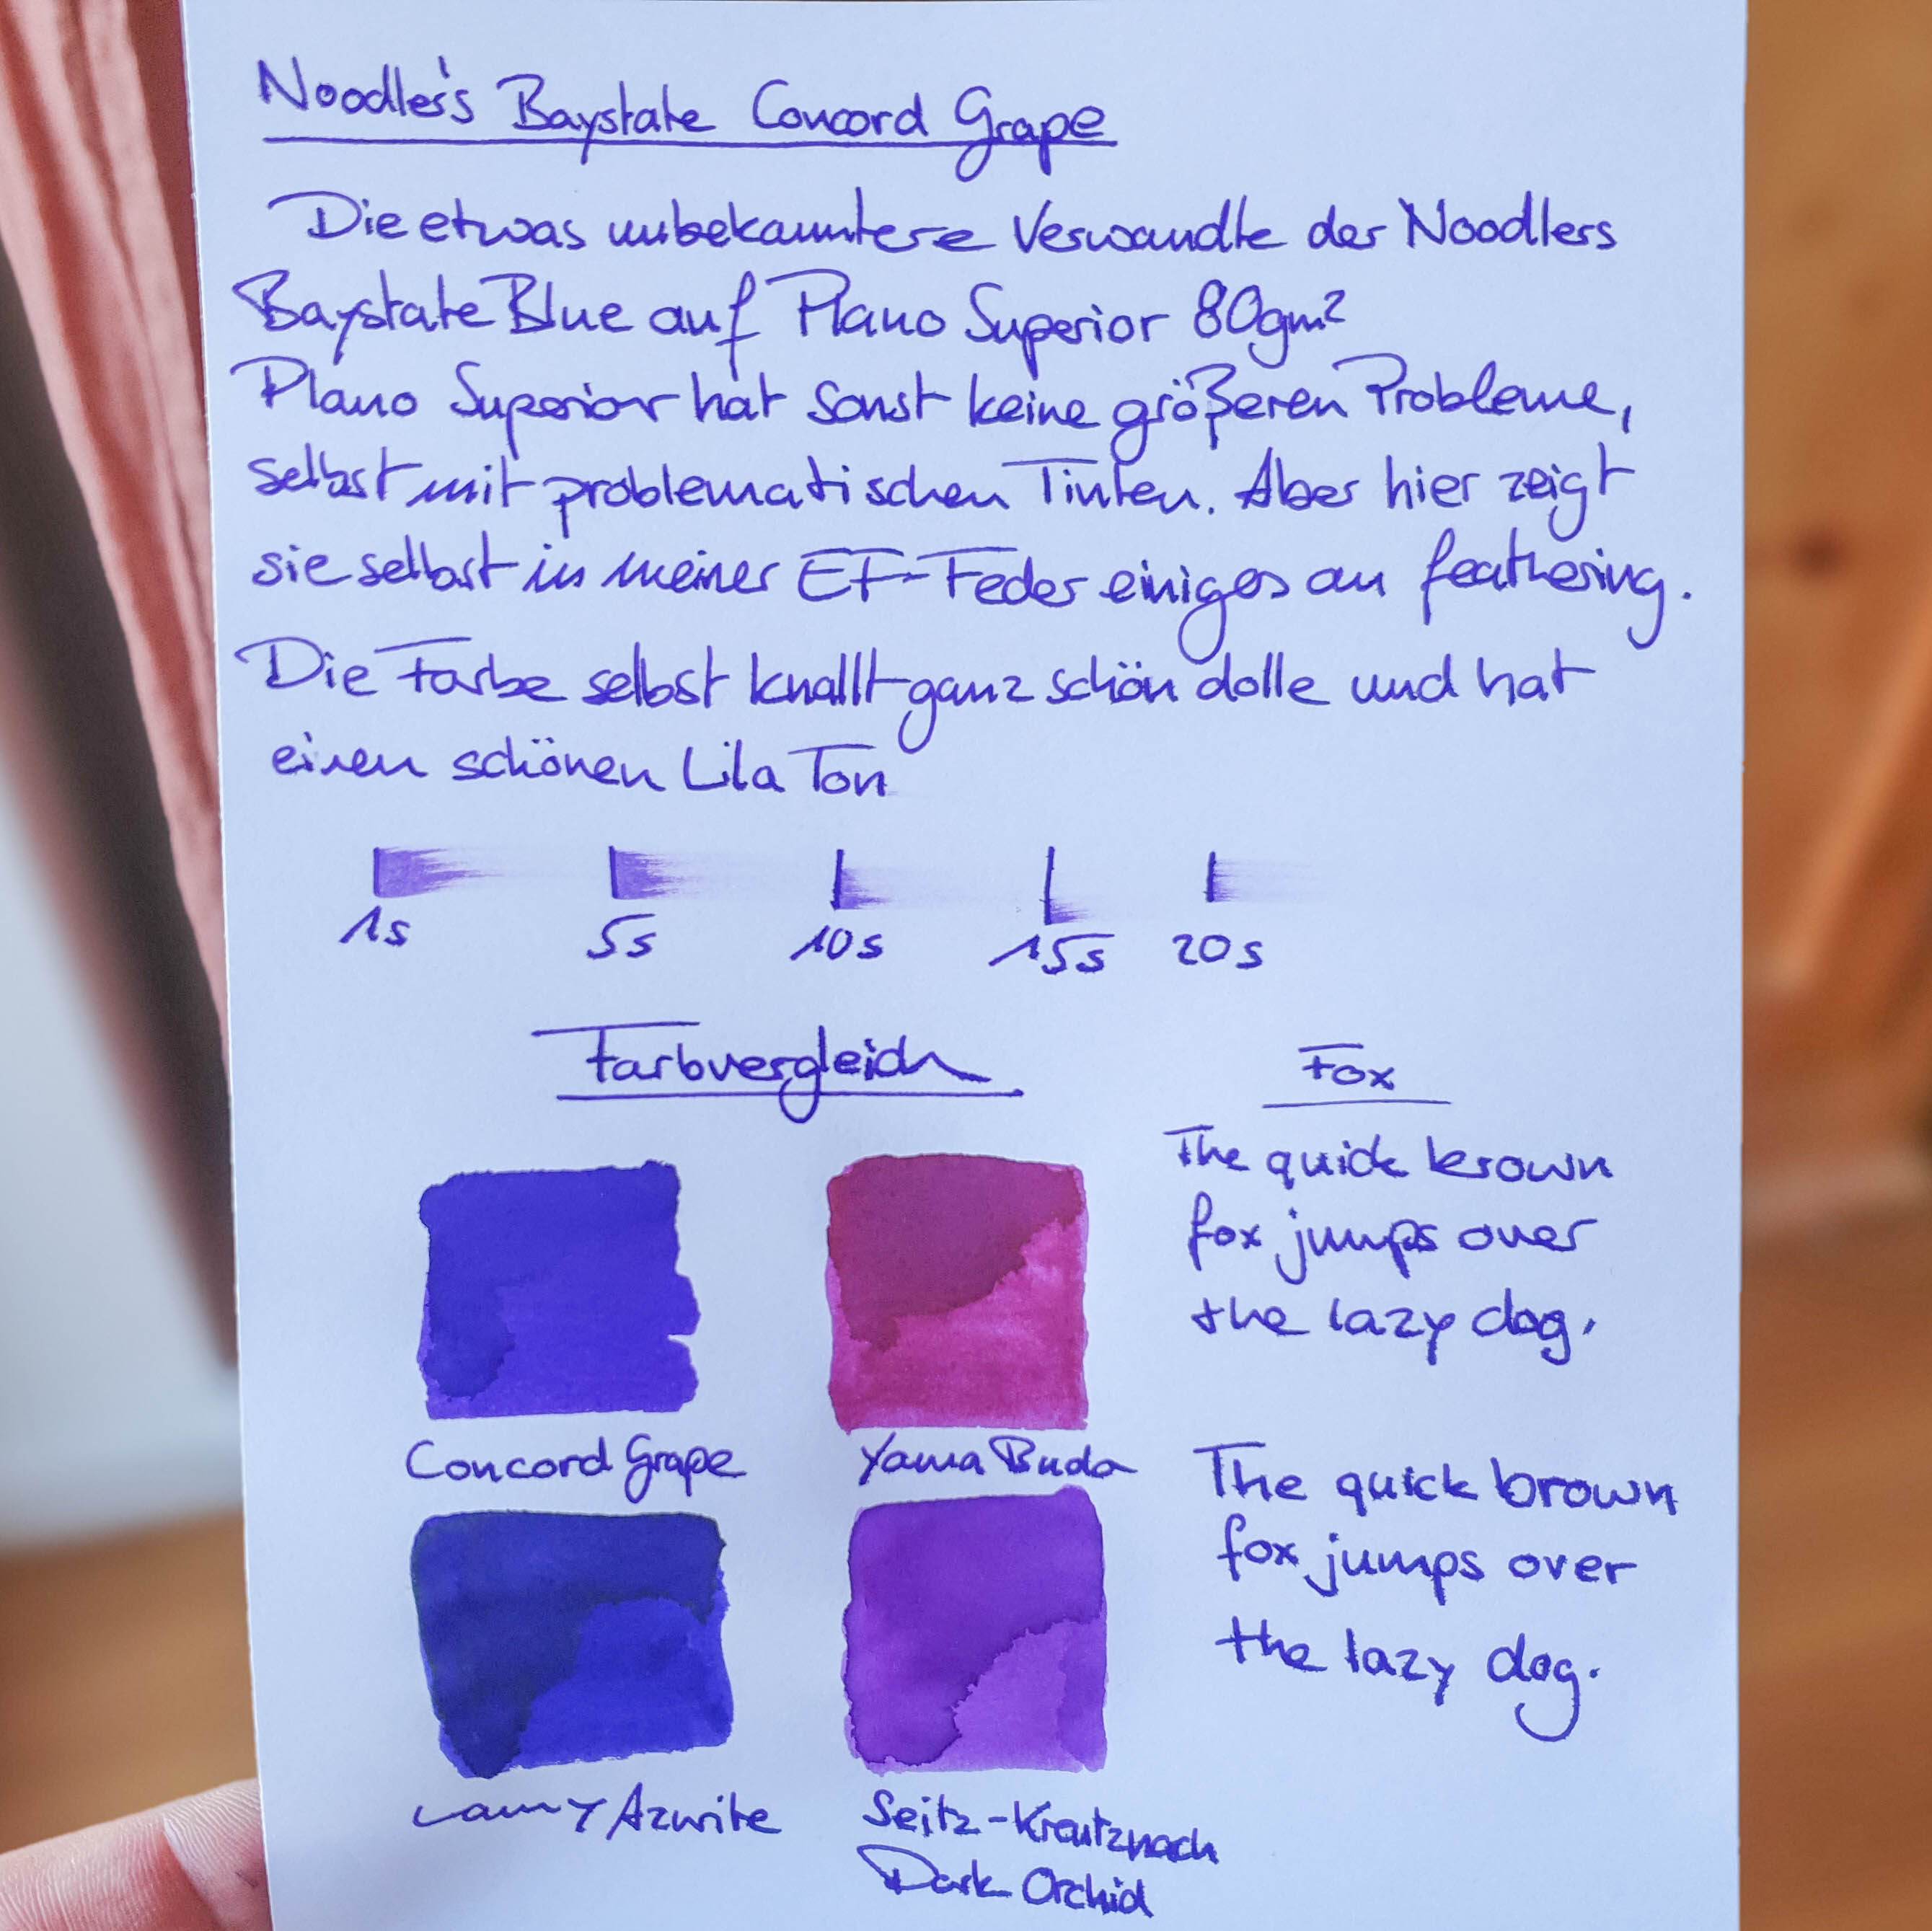 Noodler's Baystate Concord Grape
Die etwas unbekanntere Verwandte der Noodlers
Baystate Blue auf Plano Superior 80gm²
Plano Superior hat sonst keine größeren Probleme,
selbst mit problematischen Tinten. Aber hier zeigt
sie selbst in meiner EF-Feder einiges an feathering.
Die Farbe selbst knallt ganz schön dolle und hat
einen schönen Lila Ton
1s 5s 10s 15s 20s
Farbvergleich
Concord Grape
Yama Budo
Lamy Azurite
Seitz-Kreutznach
Dark Orchid
Fox
The quick brown
fox jumps over
the lazy dog.
The quick brown
fox jumps over
the lazy dog.